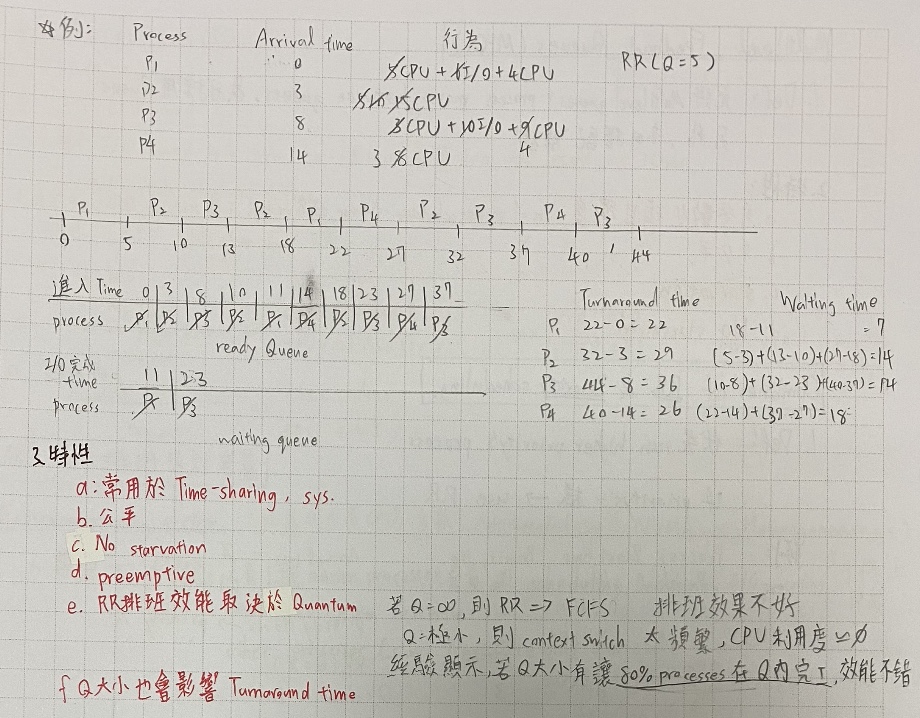 例: Process Arrival time 行為 RR(Q=5)
P1 0 5CPU + 6I/O + 4CPU
P2 3 5 10 15CPU
P3 8 3CPU + 10I/O + 9CPU
4
P4 14 3 8CPU
P1 P2 P3 P2 P1 P4 P2 P3 P4 P3
0 5 10 13 18 22 27 32 37 40 44
進入 Time 0 3 8 10 11 14 18 23 27 37
process P1 P2 P3 P2 P1 P4 P2 P3 P4 P3
ready Queue
I/O完成 time 11 23
process P1 P3
waiting queue
Turnaround time Waiting time
P1 22-0=22 18-11 =7
P2 32-3=29 (5-3)+(13-10)+(27-18)=14
P3 44-8=36 (10-8)+(32-23)+(40-37)=14
P4 40-14=26 (22-14)+(37-27)=18
3.特性
a:常用於 Time-sharing, sys.
b.公平
c. No starvation
d. preemptive
e. RR排班效能取決於 Quantum 若Q=∞,則 RR => FCFS 排班效果不好
Q=極小,則 context switch 太頻繁, CPU利用度≈0
經驗顯示,若Q大小有讓 80% processes 在Q內完工,效能不錯
f Q大小也會影響 Turnaround time